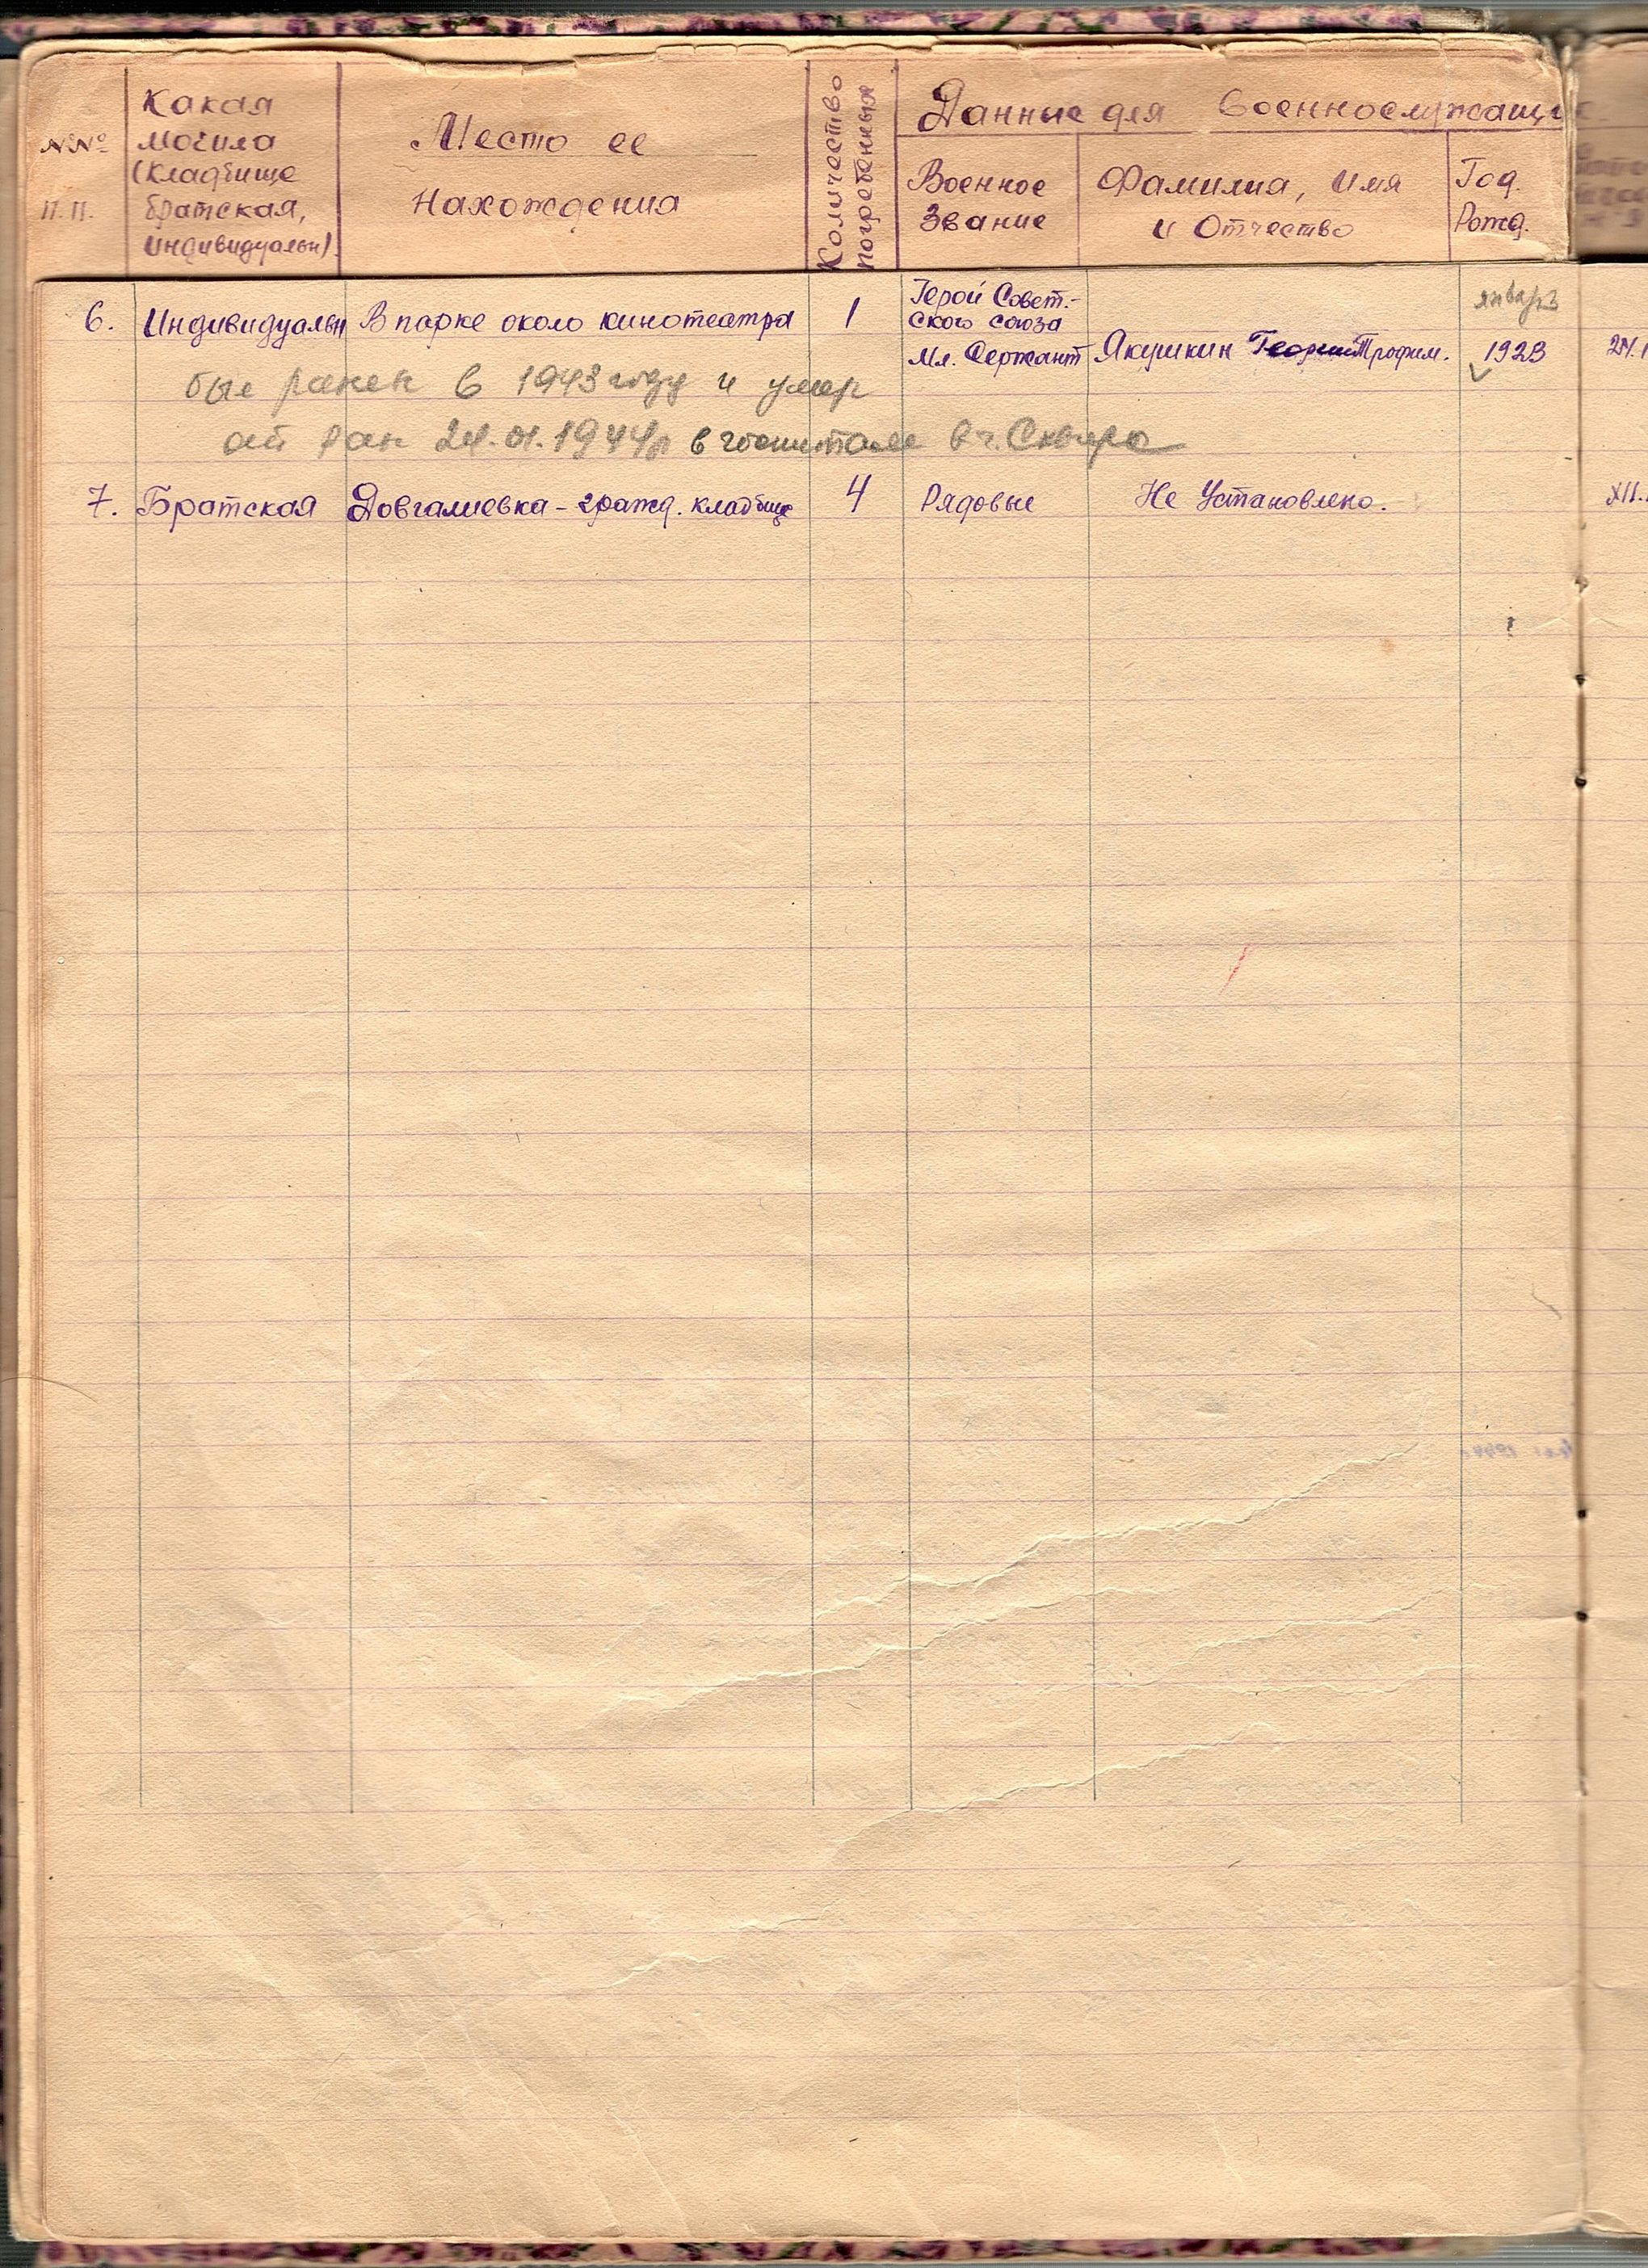 №№ п.п.
Какая могила (кладбище братская, индивидуальн).
Место ее Нахождения
Количество погребенных
Данные для военнослужащи
Военное Звание
Фамилия, имя и Отчество
Год. Рожд.
6. Индивидуальн В парке около кинотеатра 1 Герой Совет-
ского союза
Мл. Сержант Якушкин Георгий Трофим. 1923
был ранен в 1943 году и умер
от ран 24.01.1944г в госпитале в г. Сквира
7. Братская Довгалиевка - гражд. кладбище 4 Рядовые Не Установлено. XII.